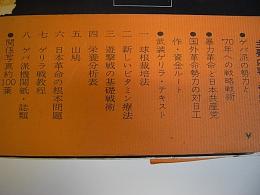 ・ゲバ派の勢力と
’70年への戦略戦術
・暴力革命と日本共産党
・国外革命勢力の対日工
作・資金ルート
・武装ゲリラ・テキスト
一 球根栽培法
二 新しいビタミン療法
三 遊撃戦の基礎戦術
四 栄養分析表
五 山鳩
六 日本革命の根本問題
七 ゲリラ戦教程
八 ゲバ派機関紙・誌類
・関係写真約100葉